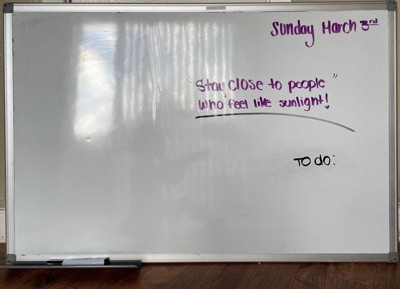 Sunday March 3rd
"Stay close to people"
who feel like sunlight!
TO do: